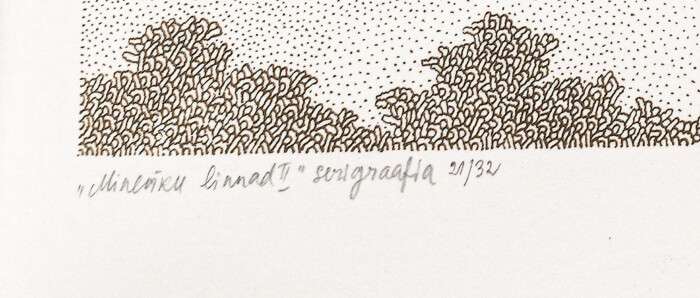 „Mineviku linnad II" serigraafia 21/32